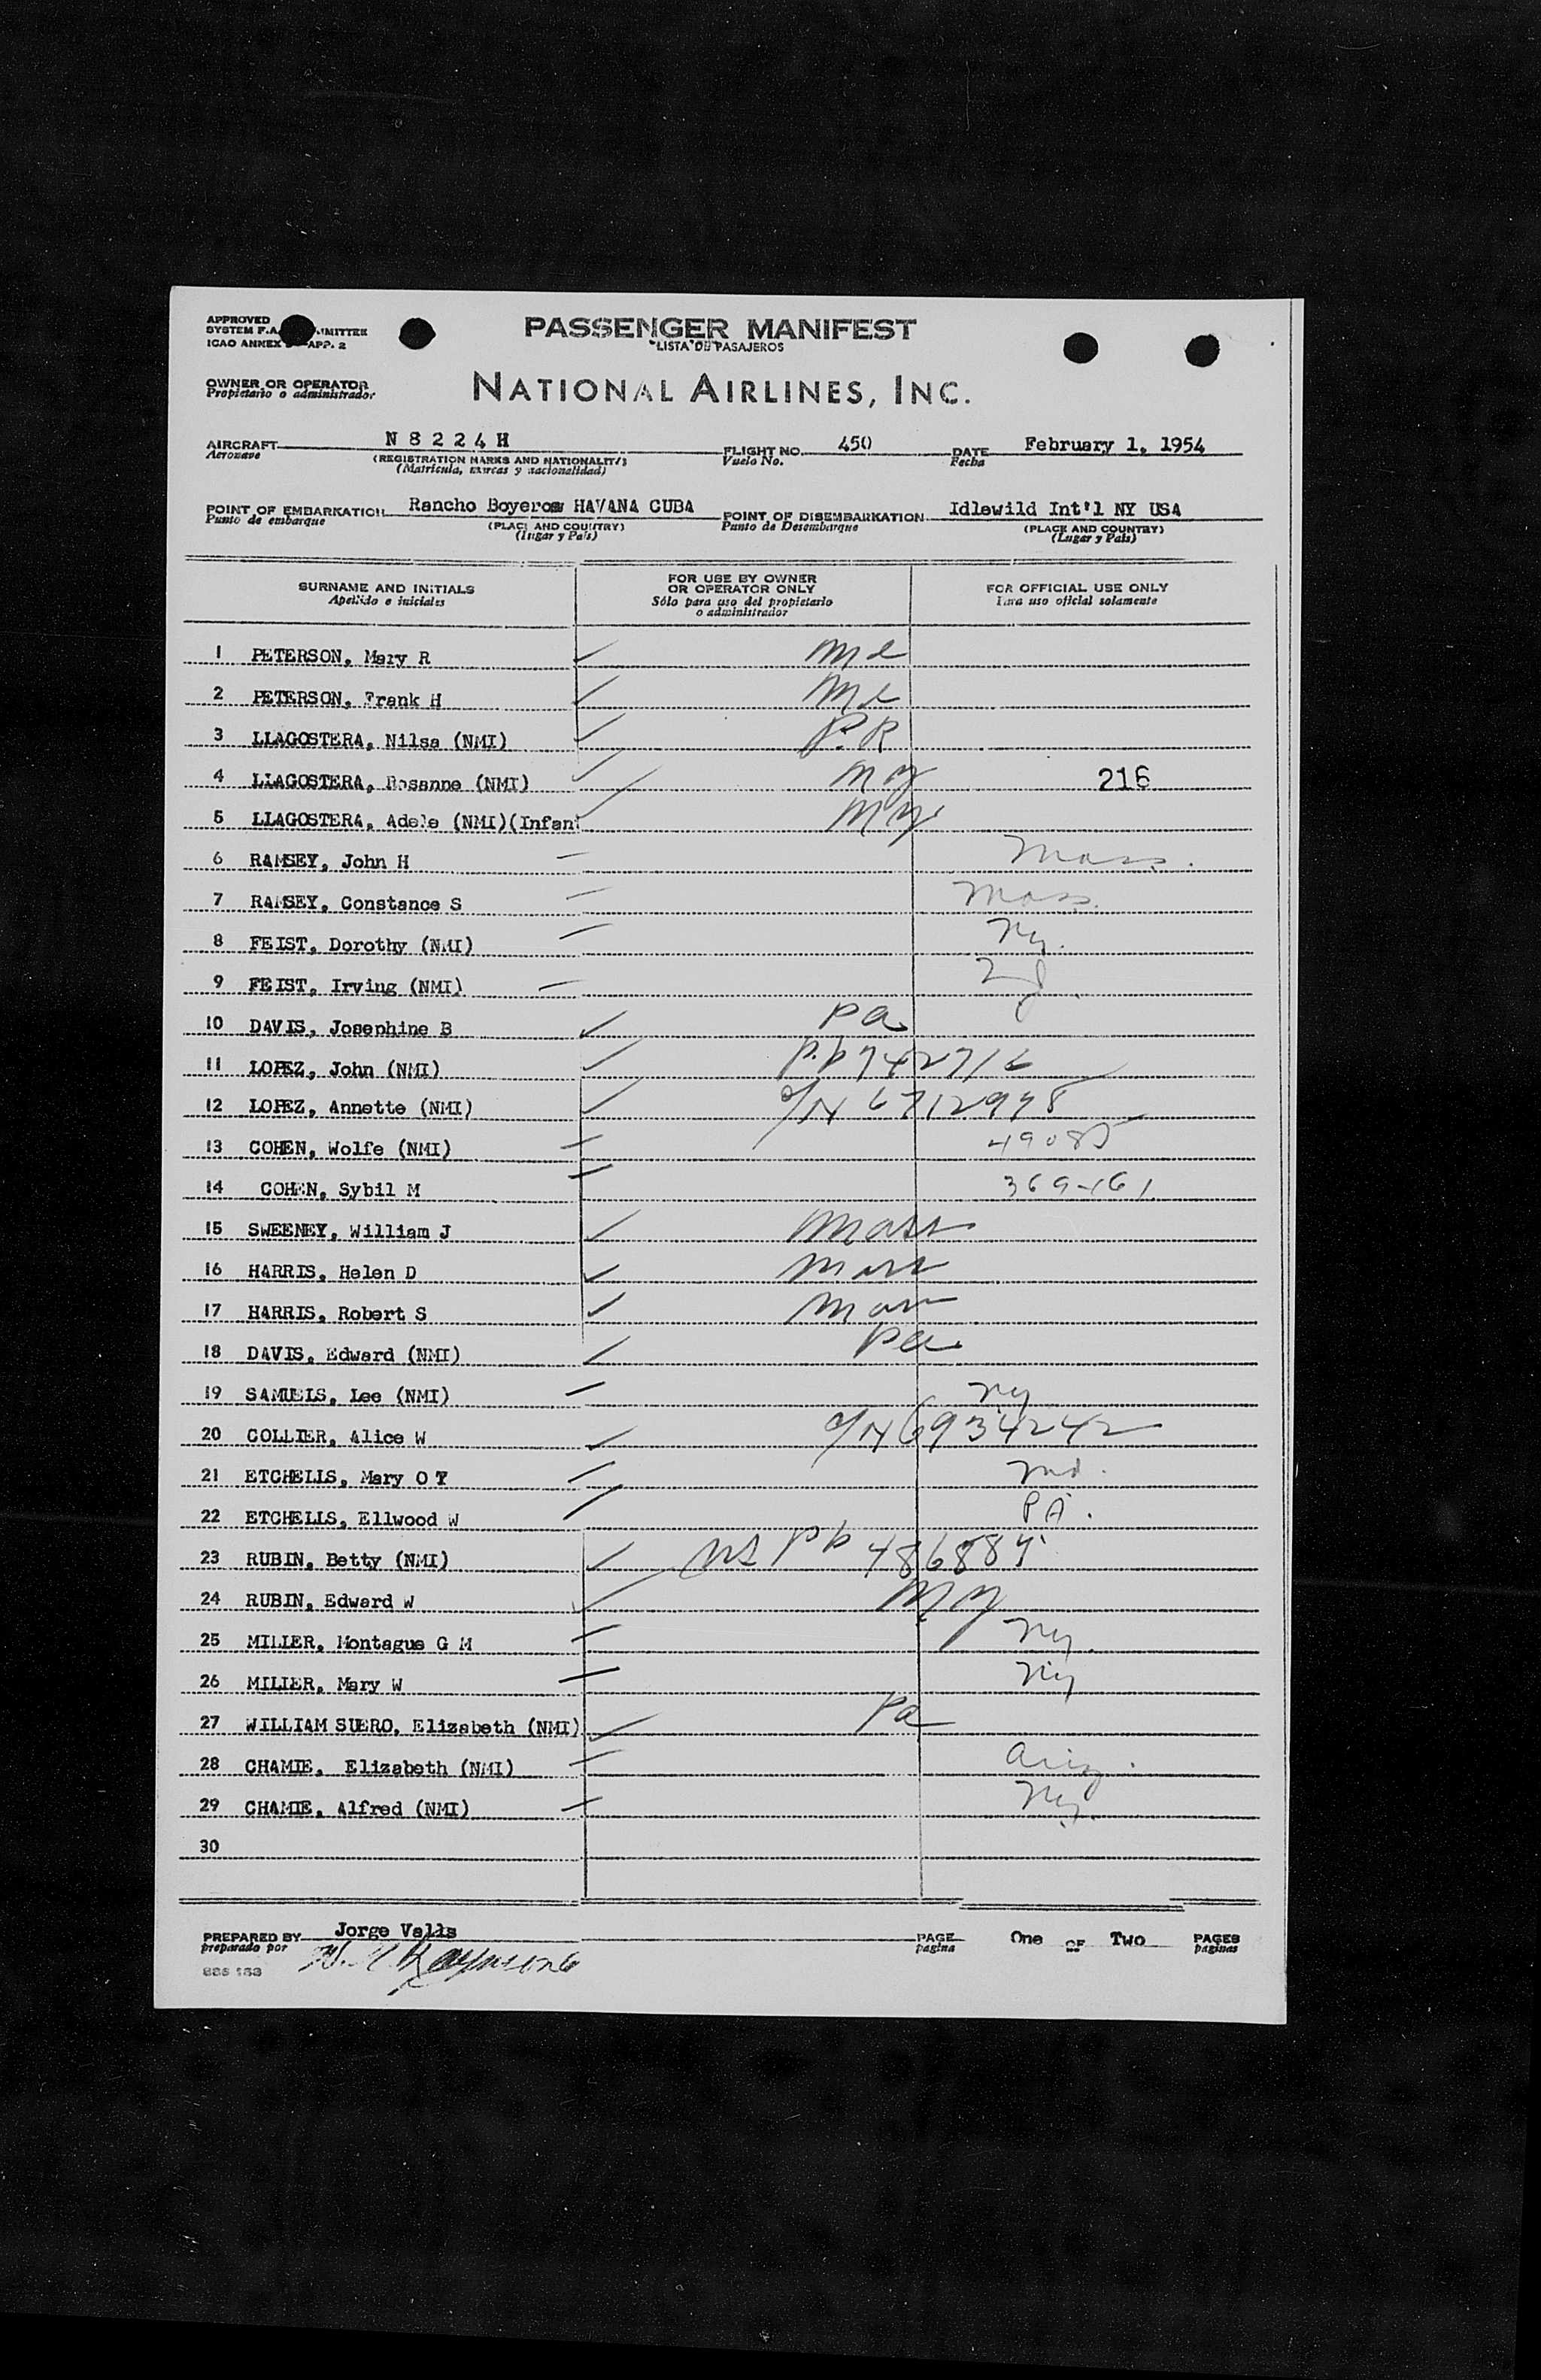 APPROVED
SYSTEM F.A. MMITTEE
ICAO ANNEX APP. 2
PASSENGER MANIFEST
"LISTA DE PASAJEROS
OWNER OR OPERATOR
Propietario o administrador
NATIONAL AIRLINES, INC.
AIRCRAFT N 8 2 2 4 H FLIGHT NO. 450 DATE February 1, 1954
Aeronave (REGISTRATION MARKS AND NATIONALITY) Vuelo No. Fecha
(Matricula, marcas y nacionalidad)
POINT OF EMBARKATION Rancho Boyeros HAVANA CUBA POINT OF DISEMBARKATION Idlewild Int'l NY USA
Punto de embarque (PLACE AND COUNTRY) Punto de Desembarque (PLACE AND COUNTRY)
(Lugar y País) (Lugar y País)
SURNAME AND INITIALS FOR USE BY OWNER OR OPERATOR ONLY FOR OFFICIAL USE ONLY
Apellido e iniciales Sólo para uso del propietario o administrador Para uso oficial solamente
1 PETERSON, Mary R Me
2 PETERSON, Frank H Me
3 LLAGOSTERA, Nilsa (NMI) P.R
4 LLAGOSTERA, Rosanne (NMI) NY 216
5 LLAGOSTERA, Adele (NMI)(Infant NY
6 RAMSEY, John H Mass.
7 RAMSEY, Constance S Mass.
8 FEIST, Dorothy (NMI) Ny.
9 FEIST, Irving (NMI)
10 DAVIS, Josephine B Pa
11 LOPEZ, John (NMI)
12 LOPEZ, Annette (NMI) C/N 6712998
13 COHEN, Wolfe (NMI) 49085
14 COHEN, Sybil M 369-161
15 SWEENEY, William J Mass
16 HARRIS, Helen D Mass
17 HARRIS, Robert S Mass
18 DAVIS, Edward (NMI) Pa
19 SAMUELS, Lee (NMI) Ny
20 COLLIER, Alice W C/N 6934242
21 ETCHELLS, Mary O T Md.
22 ETCHELLS, Ellwood W PA.
23 RUBIN, Betty (NMI) US PP
24 RUBIN, Edward W NY
25 MILLER, Montague G M Ny.
26 MILLER, Mary W Ny
27 WILLIAM SUERO, Elizabeth (NMI) Pa
28 CHAMIE, Elizabeth (NMI) Ariz.
29 CHAMIE, Alfred (NMI) Ny.
30
PREPARED BY Jorge Valls PAGE One OF Two PAGES
preparado por pagina paginas